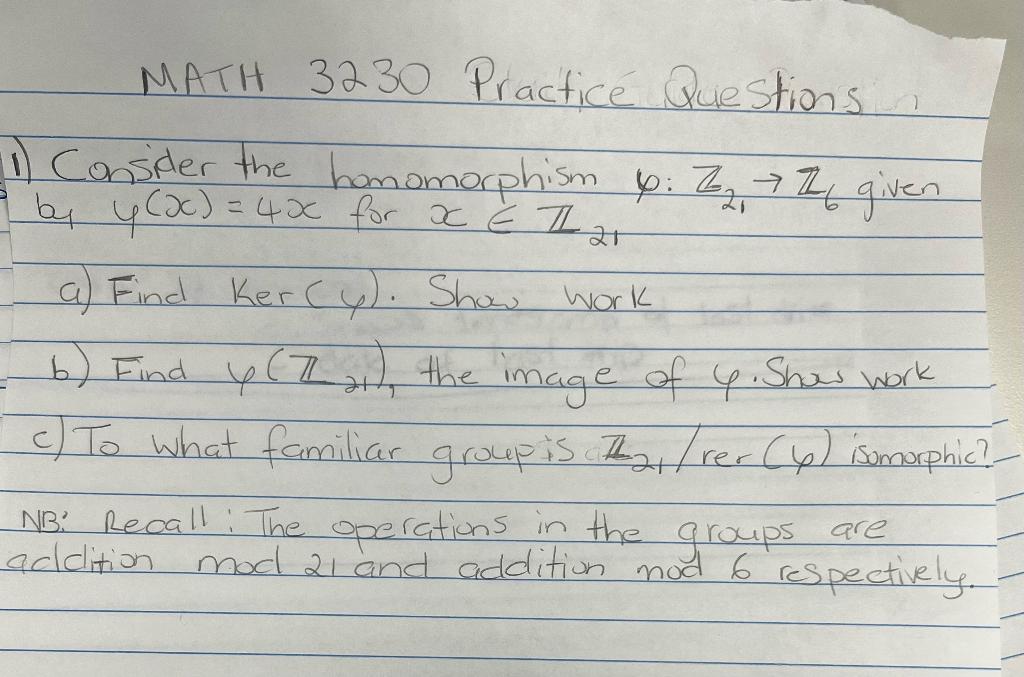 MATH 3230 Practice Questions
1) Consider the homomorphism φ: ℤ₂₁ → ℤ₆ given
by φ(x) = 4x for x ∈ ℤ₂₁
a) Find Ker(φ). Show work
b) Find φ(ℤ₂₁), the image of φ. Show work
c) To what familiar group is ℤ₂₁/ker(φ) isomorphic?
NB: Recall: The operations in the groups are
addition mod 21 and addition mod 6 respectively.